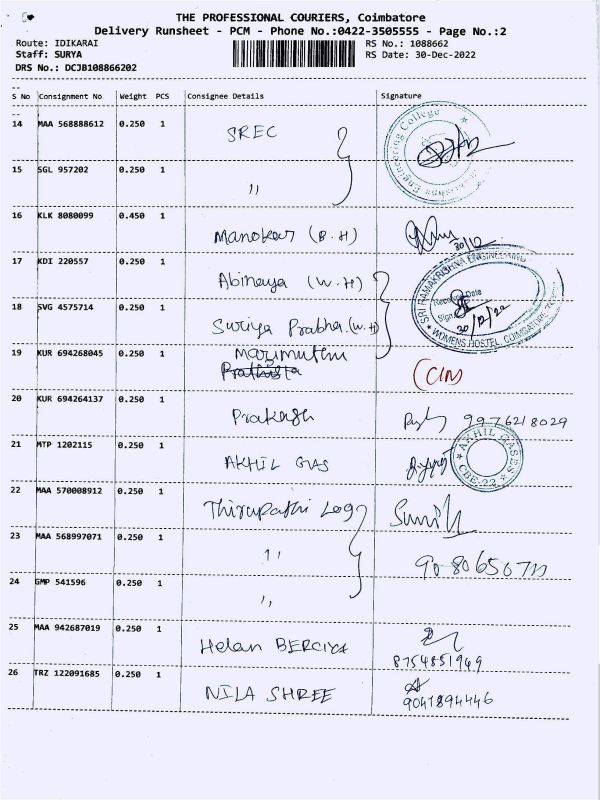 THE PROFESSIONAL COURIERS, Coimbatore
Delivery Runsheet - PCM - Phone No.:0422-3505555 - Page No.:2
Route: IDIKARAI RS No.: 1088662
Staff: SURYA RS Date: 30-Dec-2022
DRS No.: DCJB108866202
S No Consignment No Weight PCS Consignee Details Signature
14 MAA 568888612 0.250 1 SREC
Engineering College
15 SGL 957202 0.250 1 "
16 KLK 8080099 0.450 1 Manokar (B.H) 30/12
17 KDI 220557 0.250 1 Abinaya (W.H)
SRI RAMAKRISHNA ENGINEERING
Date
Sign
30/12/22
* WOMENS HOSTEL, COIMBATORE
18 SVG 4575714 0.250 1 Suriya Prabha (W.H)
19 KUR 694268045 0.250 1 Marimuthu
20 KUR 694264137 0.250 1 Prakash 9976218029
21 MTP 1202115 0.250 1 AKHIL GAS
* AKHIL GASES * CBE-22
22 MAA 570008912 0.250 1 Thirupathi Log
23 MAA 568997071 0.250 1 "
24 GMP 541596 0.250 1 "
25 MAA 942687019 0.250 1 Helan BERCIYA
8754851949
26 TRZ 122091685 0.250 1 NILA SHREE
9041894446